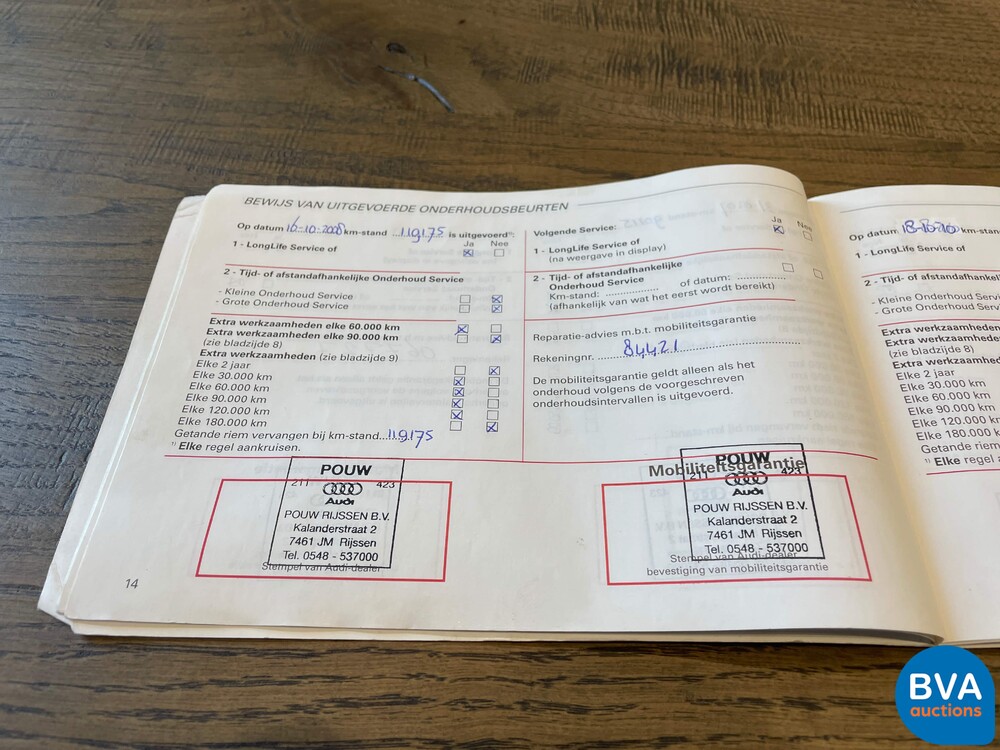 BEWIJS VAN UITGEVOERDE ONDERHOUDSBEURTEN
Op datum 16-10-2008 km-stand ...119175... is uitgevoerd¹⁾:
Ja Nee
1 - LongLife Service of
2 - Tijd- of afstandafhankelijke Onderhoud Service
- Kleine Onderhoud Service
- Grote Onderhoud Service
Extra werkzaamheden elke 60.000 km
Extra werkzaamheden elke 90.000 km
(zie bladzijde 8)
Extra werkzaamheden (zie bladzijde 9)
Elke 2 jaar
Elke 30.000 km
Elke 60.000 km
Elke 90.000 km
Elke 120.000 km
Elke 180.000 km
Getande riem vervangen bij km-stand...119175
¹⁾ Elke regel aankruisen.
POUW
211 423
Audi
POUW RIJSSEN B.V.
Kalanderstraat 2
7461 JM Rijssen
Tel. 0548 - 537000
Stempel van Audi-dealer
14
Volgende Service:
Ja Nee
1 - LongLife Service of
(na weergave in display)
2 - Tijd- of afstandafhankelijke
Onderhoud Service
Km-stand: .................. of datum: ..................
(afhankelijk van wat het eerst wordt bereikt)
Reparatie-advies m.b.t. mobiliteitsgarantie
Rekeningnr. ......84421......
De mobiliteitsgarantie geldt alleen als het
onderhoud volgens de voorgeschreven
onderhoudsintervallen is uitgevoerd.
Mobiliteitsgarantie
POUW
211 423
Audi
POUW RIJSSEN B.V.
Kalanderstraat 2
7461 JM Rijssen
Tel. 0548 - 537000
Stempel van Audi-dealer
bevestiging van mobiliteitsgarantie
Op datum km-stand
1 - LongLife Service of
2 - Tijd- of afstandafhankelijk
- Kleine Onderhoud Serv
- Grote Onderhoud Serv
Extra werkzaamheden
Extra werkzaamheden
(zie bladzijde 8)
Extra werkzaamheden
Elke 2 jaar
Elke 30.000 km
Elke 60.000 km
Elke 90.000 km
Elke 120.000 k
Elke 180.000 k
Getande riem
¹⁾ Elke regel a
BVA
auctions